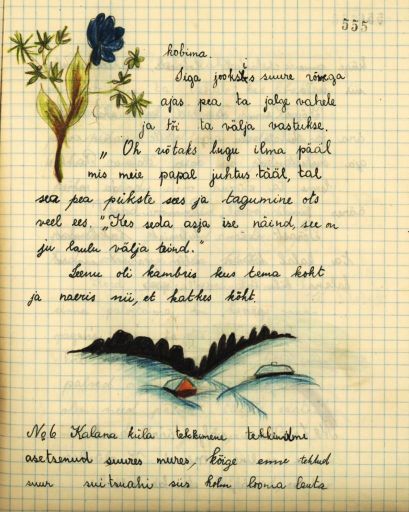 555
kobima.
Siga jooksis suure rõõmuga
ajas pea ta jalge vahele
ja tõi ta välja vastukse.
„Oh võtaks lugu ilma pääl
mis meie papal juhtus tääl, tal
sea pea pükste sees ja tagumine ots
veel ees." „Kes seda asja ise näind, see on
ju laulu välja teind."
Leenu oli kambris kus tema koht
ja naeris nii, et katkes kõht.
No 6 Kalana küla tekkimine
asetsenud suures mures, kõige enne tehtud
suur suitsuahi siis kolm looma lauta